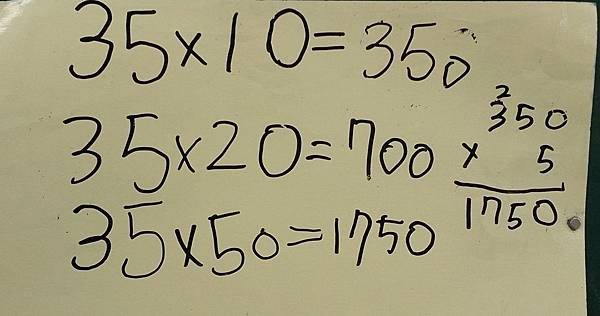 35×10=350
35×20=700
35×50=1750
2
350
× 5
1750